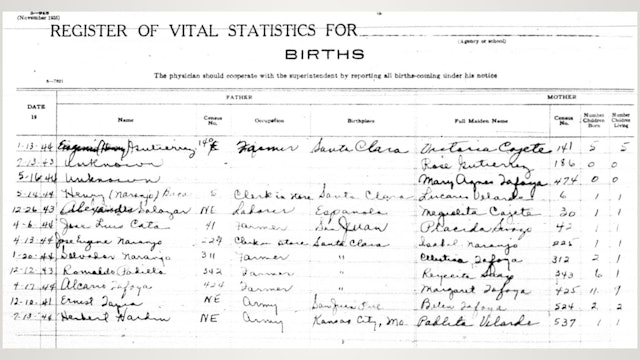 (November 1938)
REGISTER OF VITAL STATISTICS FOR
(Agency or school)
BIRTHS
The physician should cooperate with the superintendent by reporting all births coming under his notice
FATHER MOTHER
DATE
19 Name Census No. Occupation Birthplace Full Maiden Name Census No. Number Children Born Number Children Living
1-13-44 Gutierrez Farmer Santa Clara Victoria Cajete 141 5 5
7-13-43 Unknown Rose Gutierrez 186 0 0
5-16-44 Unknown Mary Agnes Tafoya 474 0 0
5-14-44 Henry (Naranjo) Santa Clara Velarde 6 1 1
12-26-43 Alexander Salazar NE Laborer Espanola Cajete 30 1 1
4-6-44 Jose Luis Cata 41 Farmer San Juan Placida 42 1 1
4-13-44 Jose Eugene Naranjo 224 Clerk in Store Santa Clara Isabel Naranjo 225 1 1
1-20-44 Salvador Naranjo 311 Farmer " Tafoya 312 2 1
12-12-43 Romaldo Padilla 342 Farmer " 343 6 1
4-17-44 Tafoya 424 Farmer " Margaret Tafoya 425 11 9
12-12-41 Ernest Tapia NE Army Belen Tafoya 524 2 2
7-13-44 Herbert Hardin NE Army Kansas City, Mo. Pablita Velarde 537 1 1